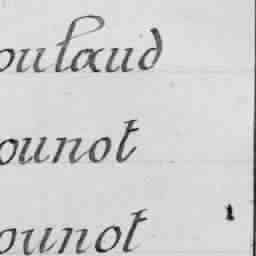 oulaud
ounot
ounot 1